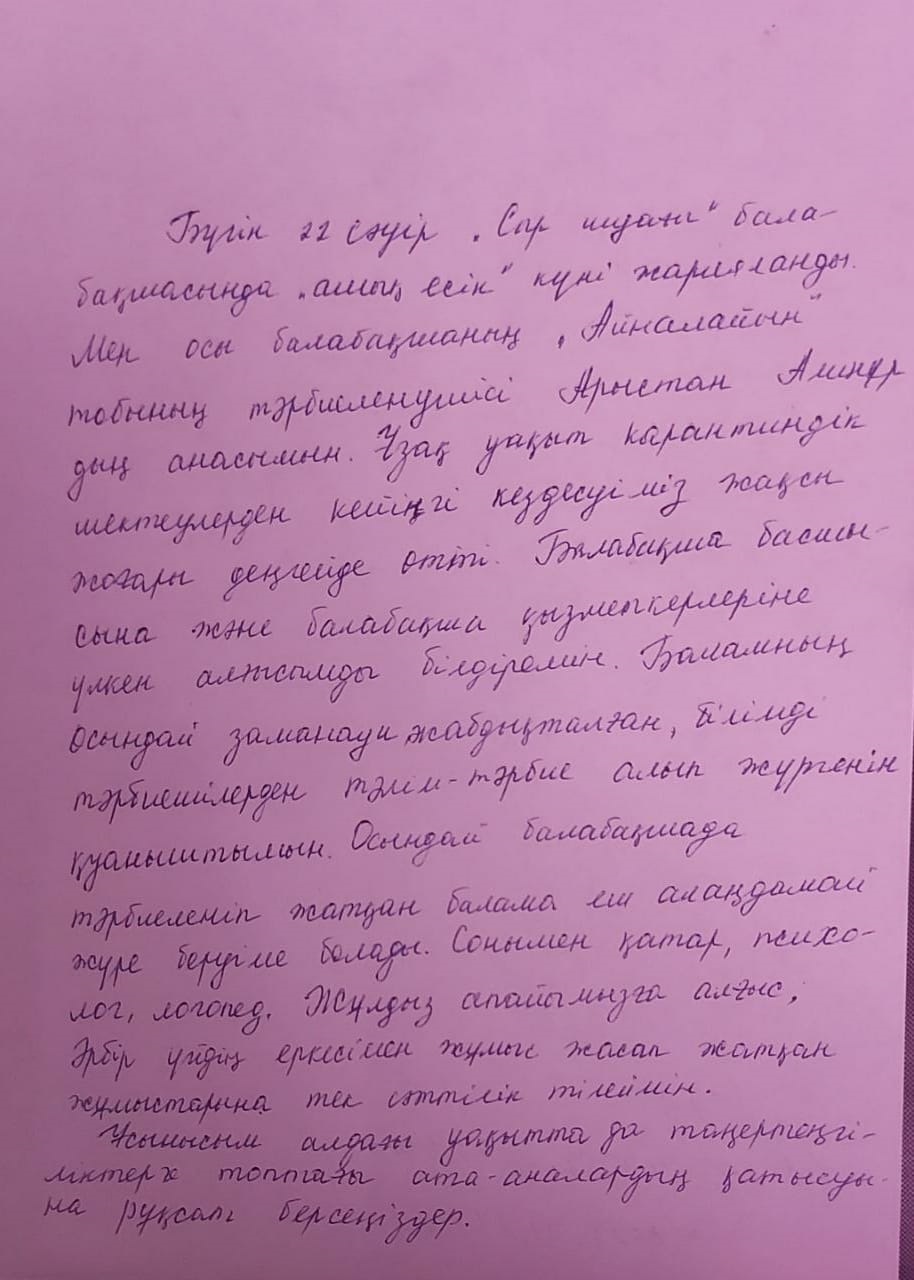 Бүгін 22 сәуір „Сыр шуағы" бала-
бақшасында „ашық есік" күні жарияланды.
Мен осы балабақшаның „Айналайын"
тобының тәрбиеленушісі Арыстан Алинұр
дың анасымын. Ұзақ уақыт карантиндік
шектеулерден кейіңгі кездесуіміз жақсы
жоғары деңгейде өтті. Балабақша басшы-
сына және балабақша қызметкерлеріне
үлкен алғысымды білдіремін. Баламның
Осындай заманауи жабдықталған, білімді
тәрбиешілерден тәлім-тәрбие алып жүргенін
қуаныштымын. Осындай балабақшада
тәрбиеленіп жатқан балама еш алаңдамай
жүре беруіме болады. Сонымен қатар, психо-
лог, логопед. Жұлдыз апайымызға алғыс,
Әрбір үйдің еркесімен жұмыс жасап жатқан
жұмыстарына тек сәттілік тілеймін.
Ұсынысым алдағы уақытта да таңертеңгі-
ліктерге топтағы ата-аналардың қатысуы-
на рұқсат берсеңіздер.